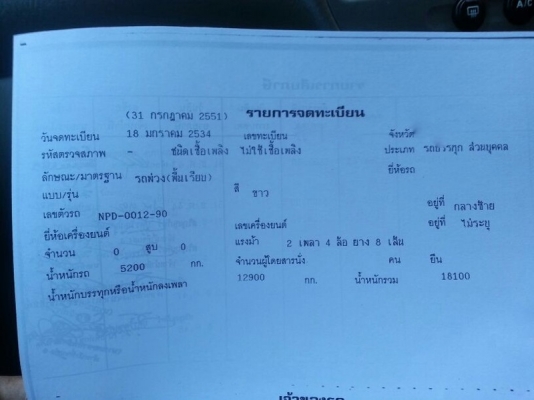 A/C
(31 กรกฎาคม 2551) รายการจดทะเบียน
วันจดทะเบียน 18 มกราคม 2534 เลขทะเบียน จังหวัด
รหัสตรวจสภาพ - ชนิดเชื้อเพลิง ไม่ใช้เชื้อเพลิง ประเภท ส่วนบุคคล
ลักษณะ/มาตรฐาน รถพ่วง(พื้นเรียบ) ยี่ห้อรถ
แบบ/รุ่น สี ขาว
เลขตัวรถ NPD-0012-90 อยู่ที่ กลางซ้าย
ยี่ห้อเครื่องยนต์ เลขเครื่องยนต์ อยู่ที่ ไม่ระบุ
จำนวน 0 สูบ 0 แรงม้า 2 เพลา 4 ล้อ ยาง 8 เส้น
น้ำหนักรถ 5200 กก. จำนวนผู้โดยสารนั่ง คน ยืน
น้ำหนักบรรทุกหรือน้ำหนักลงเพลา 12900 กก. น้ำหนักรวม 18100
เจ้าของรถ